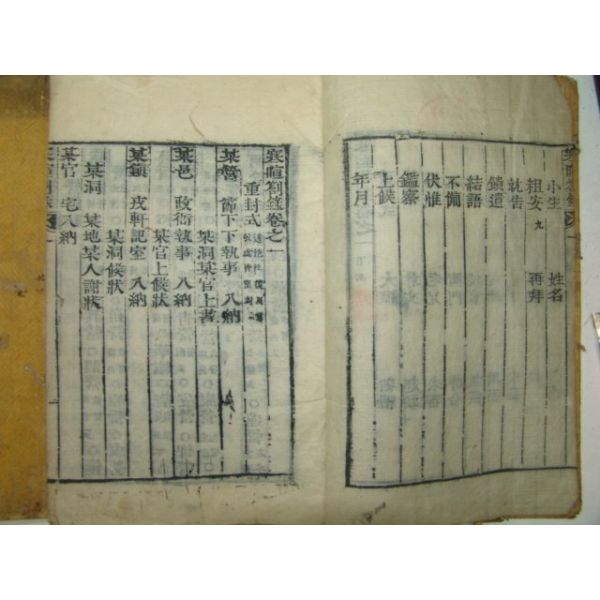 小生 姓名
安 九 再拜
就告
結語
不備
伏惟
鑑察
上候
年月
寒暄箚錄卷之一
重封式
某營 節下下執事 入納
某洞某官上書
某邑 政衙執事 入納
某官上候狀
某鎭 戎軒記室 入納
某洞候狀
某洞 某地某人謝狀
某官 宅入納